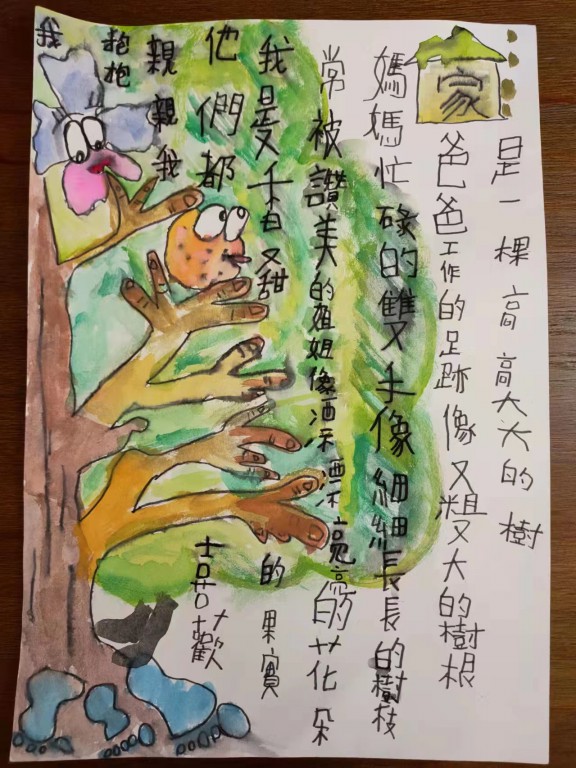 家
是一棵高高大大的樹
爸爸工作的足跡像又粗又大的樹根
媽媽忙碌的雙手像細細長長的樹枝
常被讚美的姐姐像漂漂亮亮的花朵
我是又香又甜的果實
他們都喜歡
親親我
抱抱
我